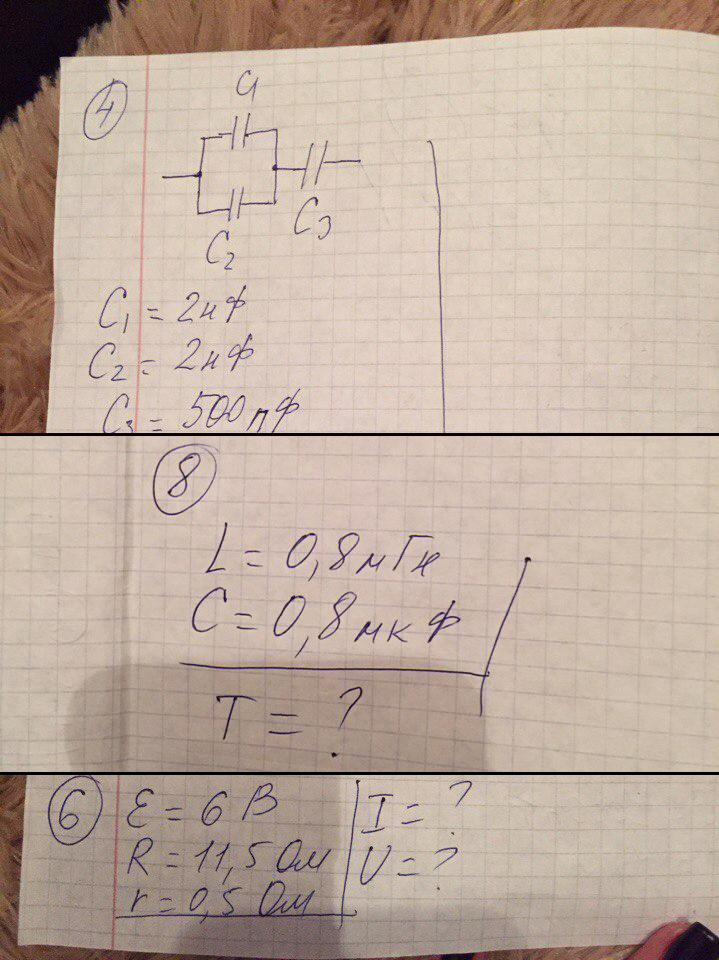 4
C1
C2
C3
C1 = 2нФ
C2 = 2нФ
C3 = 500пФ
8
L = 0,8мГн
C = 0,8мкФ
T = ?
6 Ɛ = 6 В I = ?
R = 11,5 Ом U = ?
r = 0,5 Ом